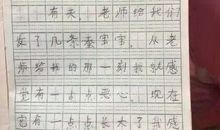 有天,老师给我们
发了几条蚕宝宝,从老
师给我的那一刻我就感
觉有一点点恶心,现在
它有一点点长大了我感